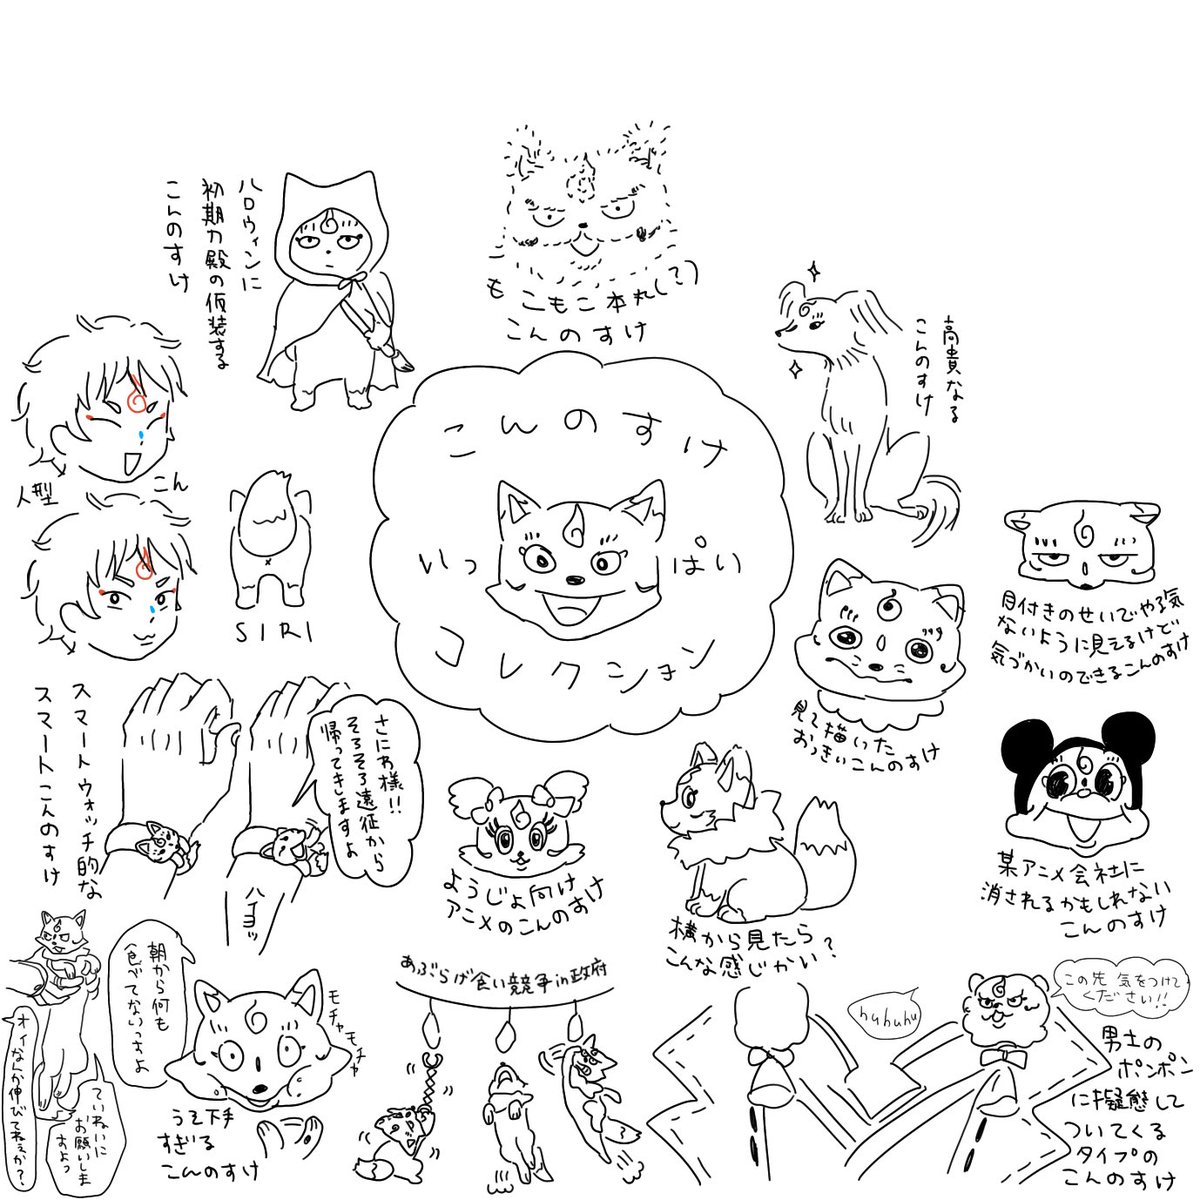 こんのすけ
いっぱい
コレクション
もこもこ本丸(?)
こんのすけ
ハロウィンに
初期刀殿の仮装する
こんのすけ
高貴なる
こんのすけ
人型
こん
SIRI
目付きのせいでやる気
ないように見えるけど
気づかいのできるこんのすけ
見て描いた
おっきいこんのすけ
スマートウォッチ的な
スマートこんのすけ
さにわ様!!
そろそろ遠征から
帰ってきますよ
ハイヨッ
ようじょ向け
アニメのこんのすけ
横から見たら
こんな感じかい?
某アニメ会社に
消されるかもしれない
こんのすけ
オイなんか伸びてねぇか?
ていねいに
お願いしま
すよっ
朝から何も
食べてないっすよ
モチャ
モチャ
うそ下手
すぎる
こんのすけ
あぶらげ食い競争in政府
huhuhu
この先 気をつけて
ください!!
男士の
ポンポン
に擬態して
ついてくる
タイプの
こんのすけ